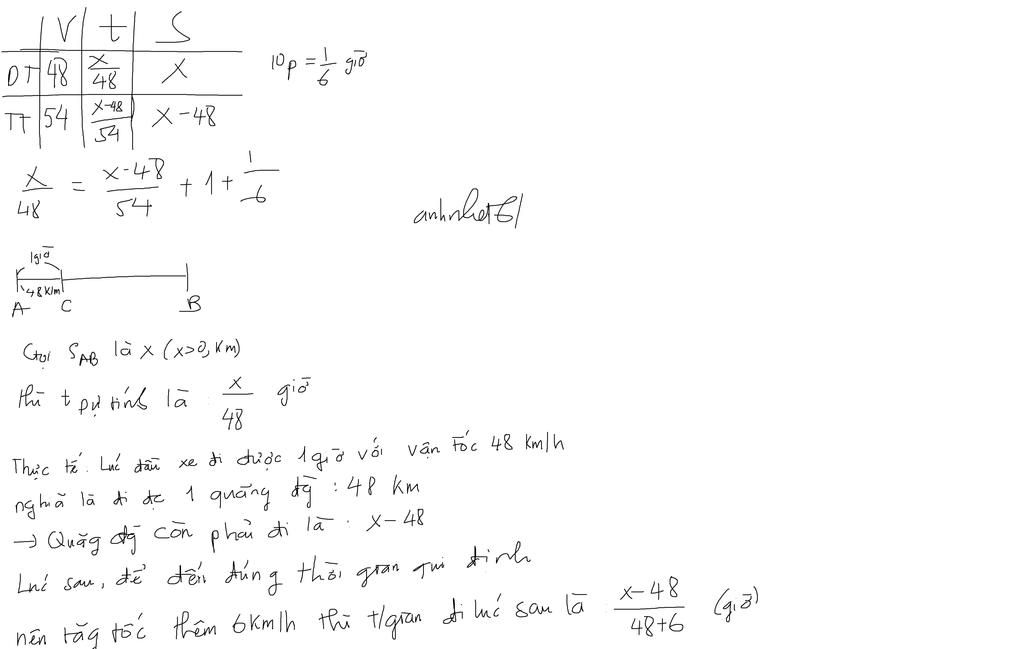 V t S
DT 48 x/48 x
10p = 1/6 giờ
TT 54 x-48/54 x-48
x/48 = x-48/54 + 1 + 1/6
anhnhet61
1giờ
48 Km
A C B
Gọi SAB là x (x>0, Km)
thì t dự tính là : x/48 giờ
Thực tế. Lúc đầu xe đi được 1 giờ với vận tốc 48 Km/h
nghĩa là đi đc 1 quãng đg : 48 Km
→ Quãg đg còn phải đi là : x-48
Lúc sau, để đến đúng thời gian qui định
nên tăg tốc thêm 6Km/h thì t/gian đi lúc sau là x-48/48+6 (giờ)